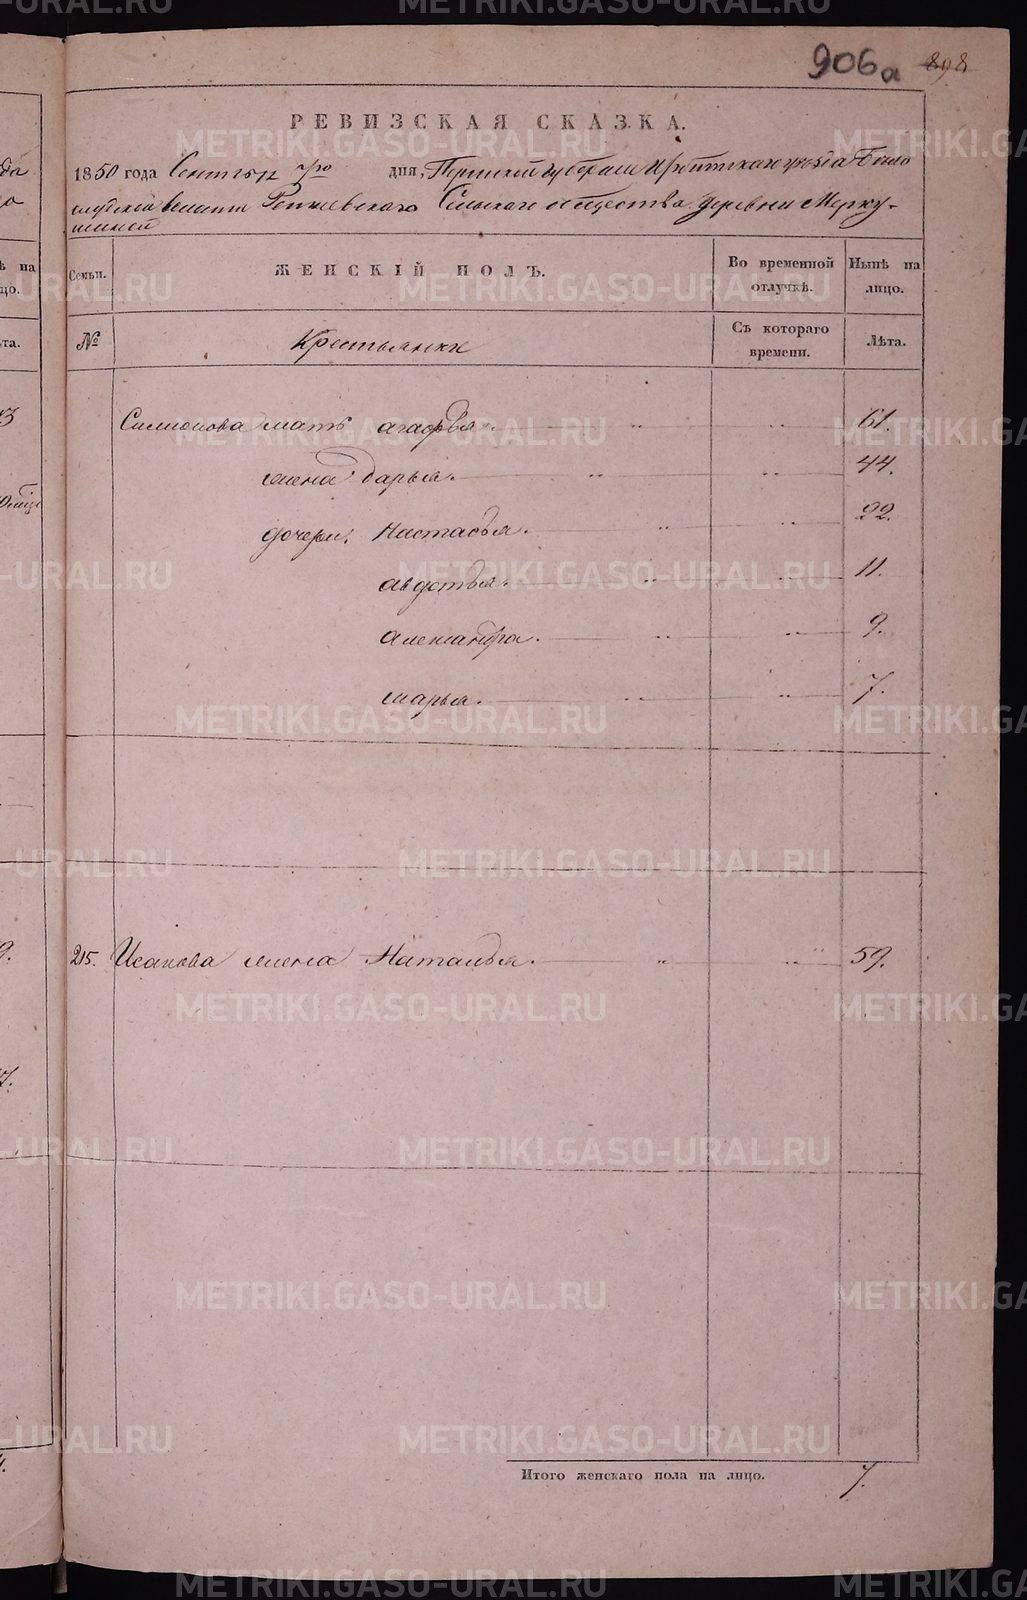 906а 898
РЕВИЗСКАЯ СКАЗКА.
1850 года Сентября 7го дня, Пермской губернии Ирбитскаго уезда Бело
слудской волости Ретневскаго Сельскаго общества деревни Мерку-
шиной
Семьи. ЖЕНСКІЙ ПОЛЪ. Во временной отлучкѣ. Нынѣ на лицо.
№ Крестьянки Съ котораго времени. Лѣта.
Симионова мать Агафья. 61.
жена Дарья. 44.
дочери: Настасья. 22.
Авдотья. 11.
Александра. 9.
Марья. 7.
215. Исакова жена Наталья. 59.
Итого женскаго пола на лицо. 7.
METRIKI.GASO-URAL.RU